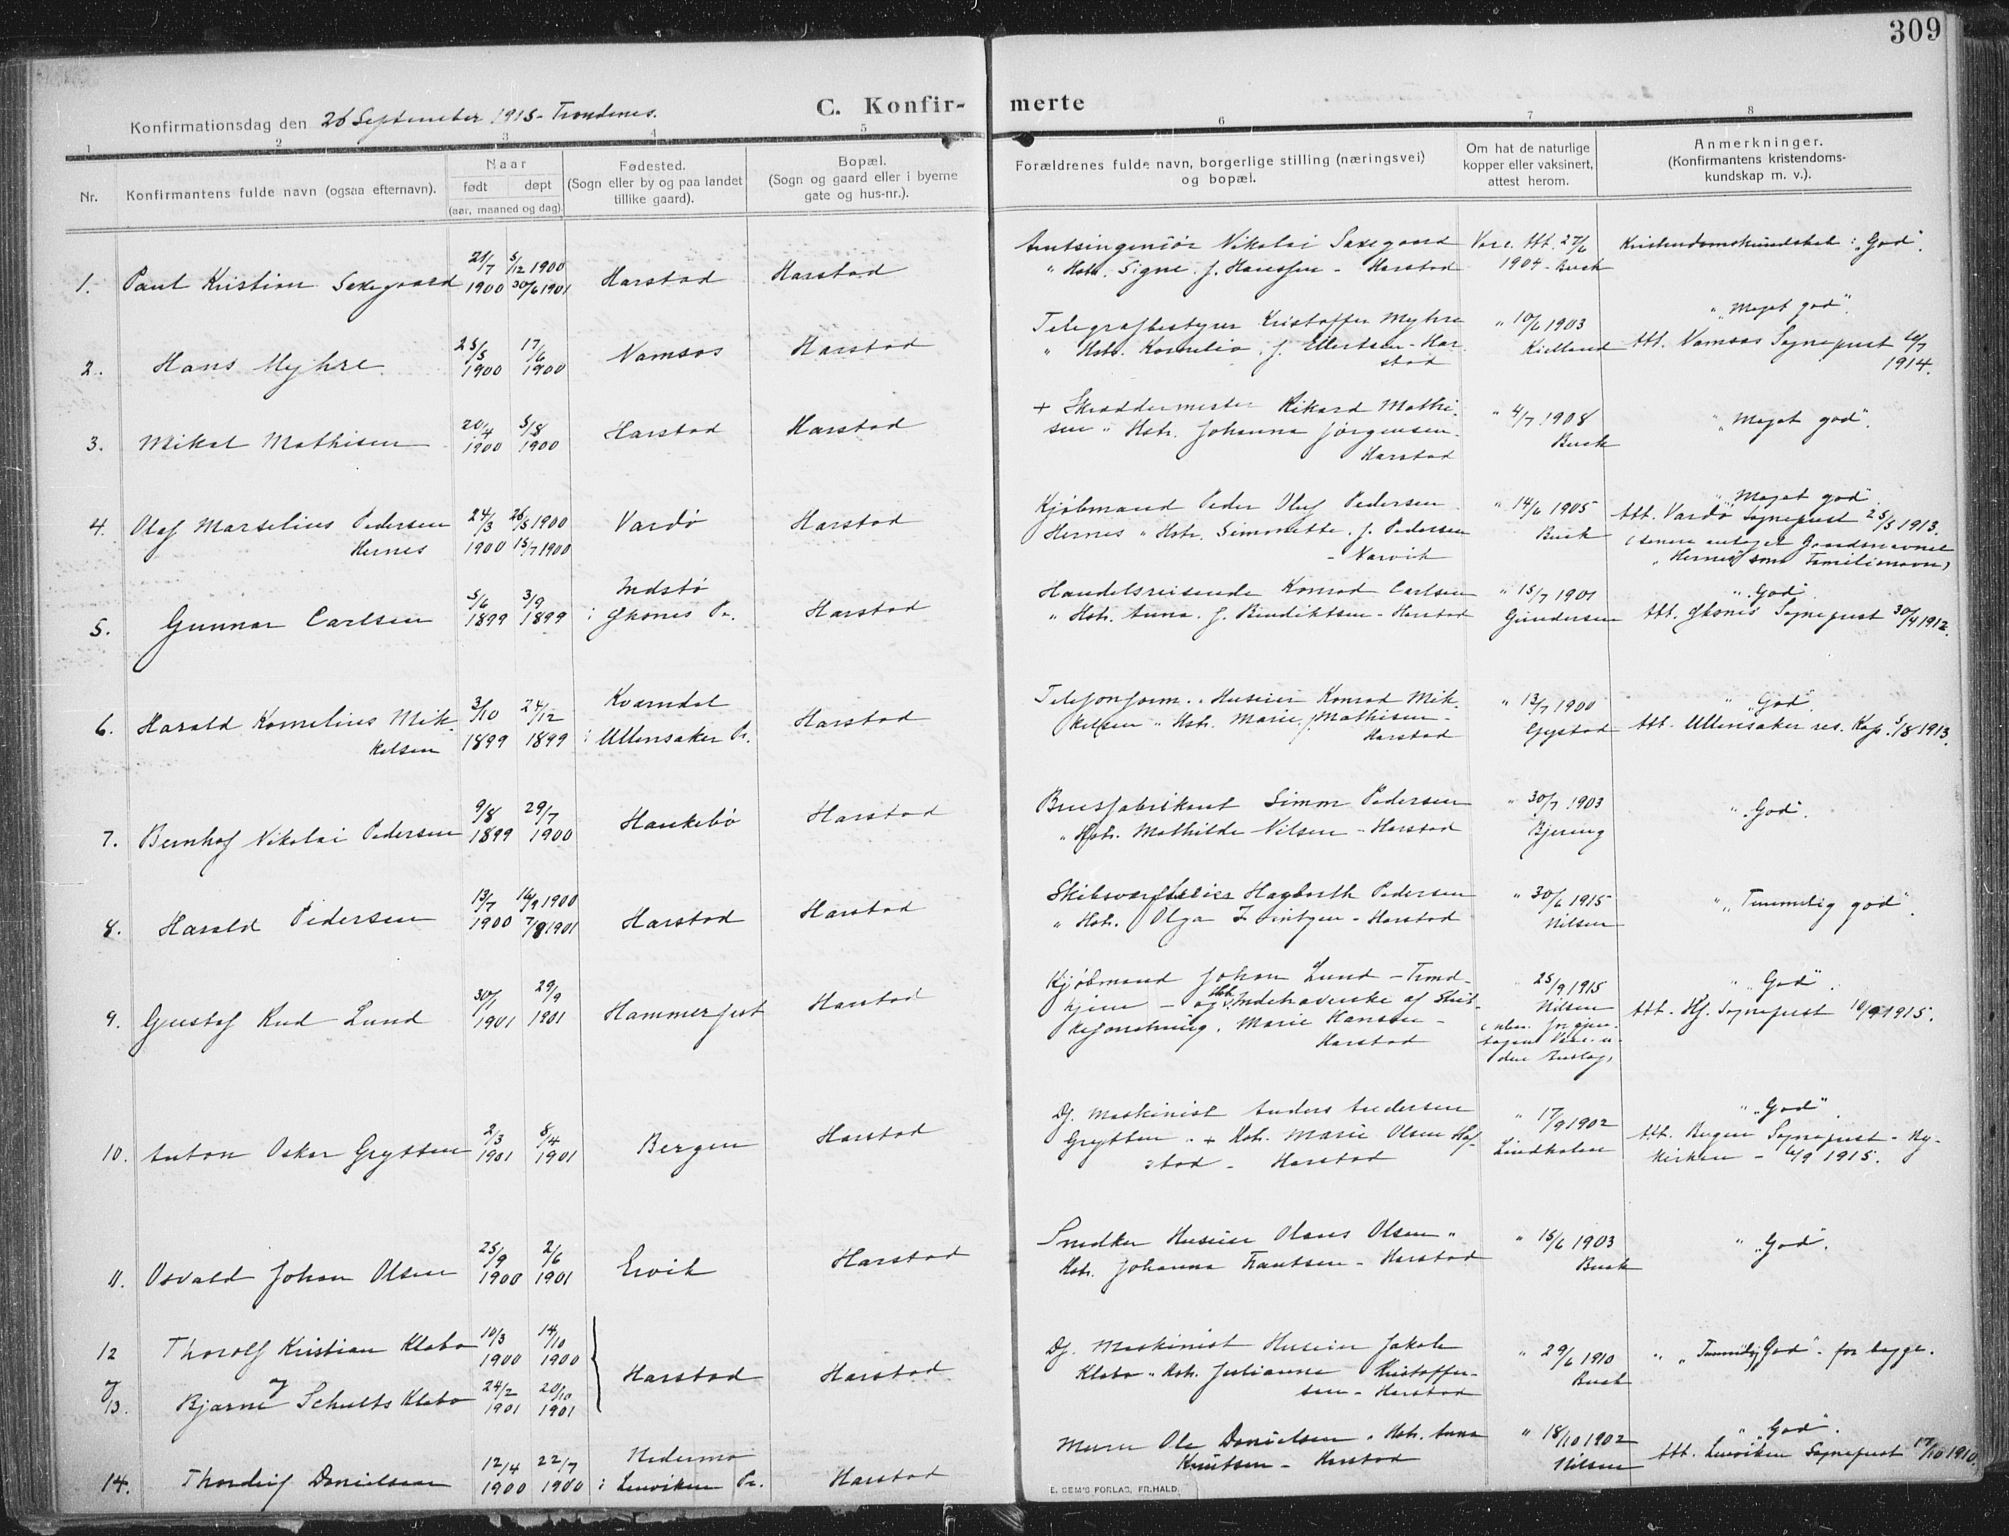 309
C. Konfir- merte
Konfirmationsdag den 26 September 1915 - Trondenes.
1 2 3 4 5 6 7 8
Nr.
Konfirmantens fulde navn (ogsaa efternavn).
Naar
født døpt
(aar, maaned og dag).
Fødested.
(Sogn eller by og paa landet
tillike gaard).
Bopæl.
(Sogn og gaard eller i byerne
gate og hus-nr.).
Forældrenes fulde navn, borgerlige stilling (næringsvei)
og bopæl.
Om hat de naturlige
kopper eller vaksinert,
attest herom.
Anmerkninger.
(Konfirmantens kristendoms-
kundskap m. v.).
Amtsingeniør Nikolai Saxegaard Vacc. Att. 27/6 Kristendomskundskab: "God".
21/7 5/12 1900
" Hstr. Signe f. Hanssen - Harstad 1904 - Buck
1. Paul Kristian Saxegaard 1900 30/6 1901 Harstad Harstad
" "Meget god".
Telegrafbestyrer Kristoffer Myhre " 10/6 1903
25/5 17/6
" Hstr. Kornelia f. Ellertsen - Har- Kielland Att. Namsos Sognepræst
stad 1914.
2. Hans Myhre 1900 1900 Namsos Harstad
+ Skræddermester Rikard Mathi- " 4/7 1908 " "Meget god".
20/4 5/8
sen " Hstr. Johanna Jørgensen. Buck
Harstad
3. Mikal Mathisen 1900 1900 Harstad Harstad
" "Meget god".
Kjøbmand Peder Oluf Pedersen " 14/6 1905 Att. Vardø Sognepræst 25/5 1913.
4. Olaf Marselius Pedersen 24/3 26/5 1900 Vardø Harstad
Hernes " Hstr. Simonette f. Pedersen Buck (senere antaget Gaardsnavnet
Hernes 1900 15/7 1900
- Narvik "Hernes" som Familienavn)
Indstø
Handelsreisende Konrad Carlsen " 15/7 1901 " "God".
5/6 3/9
" Hstr. Anna f. Bendiktsen - Harstad Gundersen Att. Sognepræst 30/4 1912.
5. Gunnar Carlsen 1899 1899 i Pr. Harstad
Kvarndal
Telefonform. " Huseier Konrad Mik- " 13/7 1900 " "God".
3/10 24/12
kelsen " Hstr. Marie f. Mathisen - Gystad Att. Ullensaker res. Kap. 5/8 1913.
Harstad
6. Harald Kornelius Mik- Harstad
kelsen 1899 1899 i Ullensaker Pr.
Brusfabrikant Simon Pedersen " 30/7 1903 " "God".
9/8 29/7
" Hstr. Mathilde Nilsen - Harstad Bjering
7. Bernhof Nikolai Pedersen 1899 1900 Haukebø Harstad
Skibsværfteier Hagbarth Pedersen " 30/6 1915 " "Temmelig god".
13/7 16/9 1900
" Hstr. Olga - Harstad Nilsen
8. Harald Pedersen 1900 7/8 1901 Harstad Harstad
Kjøbmand Johan Lund - Trond- " 25/9 1915 " "God".
30/1 29/9
hjem - og Hstr. Indehaverske af Skil- Nilsen Att. Hf. Sognepræst 10/9 1915.
9. Gustaf Knud Lund 1901 1901 Hammerfest Harstad
Marie Hansen - gjen-
Harstad tagen Vacc. u-
den Anslag)
Dj. Maskinist Anders Andersen " 17/9 1902 " "God".
2/3 8/4
Grytten " + Hstr. Marie Olsen Haf- Lindholm Att. Bergen Sognepræst - Ny-
stad - Harstad kirken - 6/9 1915.
10. Anton Oskar Grytten 1901 1901 Bergen Harstad
Snedker Huseier Olaus Olsen " " 15/6 1903 " "God".
25/9 2/6
Hstr. Johanna Frantsen - Harstad Buck
11. Osvald Johan Olsen 1900 1901 Ervik Harstad
12 Thorolf Kristian Klæbo 10/3 14/10
Dj. Maskinist Huseier Jakob " 29/6 1910 " "Temmelig God" - for begge.
1900 1900
Klæbo " Hstr. Julianna Kristoffer- Buck
sen - Harstad
og Harstad Harstad
13. Bjarne Schults Klæbo 24/2 20/10
1901 1901
Murer Ole Danielsen " Hstr. Anna " 18/10 1902 " "God".
Knutsen - Harstad Nilsen Att. Lenviken Sognepræst 17/10 1910.
Nedermo
12/4 22/7
14. Thordeif Danielsen 1900 1900 i Lenviken Pr. Harstad
E. SEM'S FORLAG, FR.HALD.